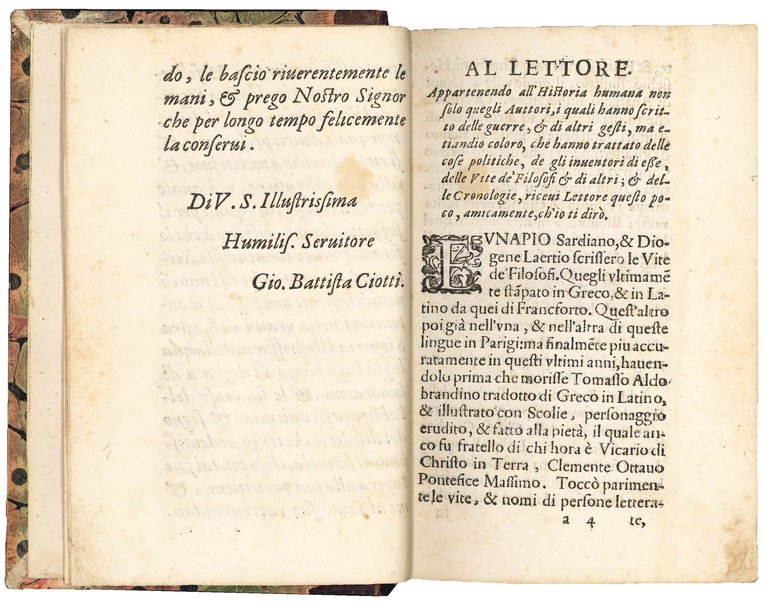 do, le baſcio riuerentemente le
mani, & prego Noſtro Signor
che per longo tempo felicemente
la conſerui.
Di V. S. Illuſtriſsima
Humiliſ. Seruitore
Gio. Battiſta Ciotti.
AL LETTORE.
Appartenendo all'Hiſtoria humana non
ſolo quegli Auttori, i quali hanno ſcrit-
to delle guerre, & di altri geſti, ma e-
tiandio coloro, che hanno trattato delle
coſe politiche, de gli inuentori di eſſe,
delle Vite de' Filoſofi & di altri; & del-
le Cronologie, riceui Lettore queſto po-
co, amicamente, ch'io ti dirò.
EVNAPIO Sardiano, & Dio-
gene Laertio ſcriſſero le Vite
de' Filoſofi. Quegli vltimamē
te ſtāpato in Greco, & in La-
tino da quei di Francforto. Queſt'altro
poi già nell'vna, & nell'altra di queſte
lingue in Parigi: ma finalmēte piu accu-
ratamente in queſti vltimi anni, hauen-
dolo prima che moriſſe Tomaſſo Aldo
brandino tradotto di Greco in Latino,
& illuſtrato con Scolie, perſonaggio
erudito, & fatto alla pietà, il quale an-
co fu fratello di chi hora è Vicario di
Chriſto in Terra, Clemente Ottauo
Pontefice Maſſimo. Toccò parimen-
te le vite, & nomi di perſone lettera-
a 4 te,